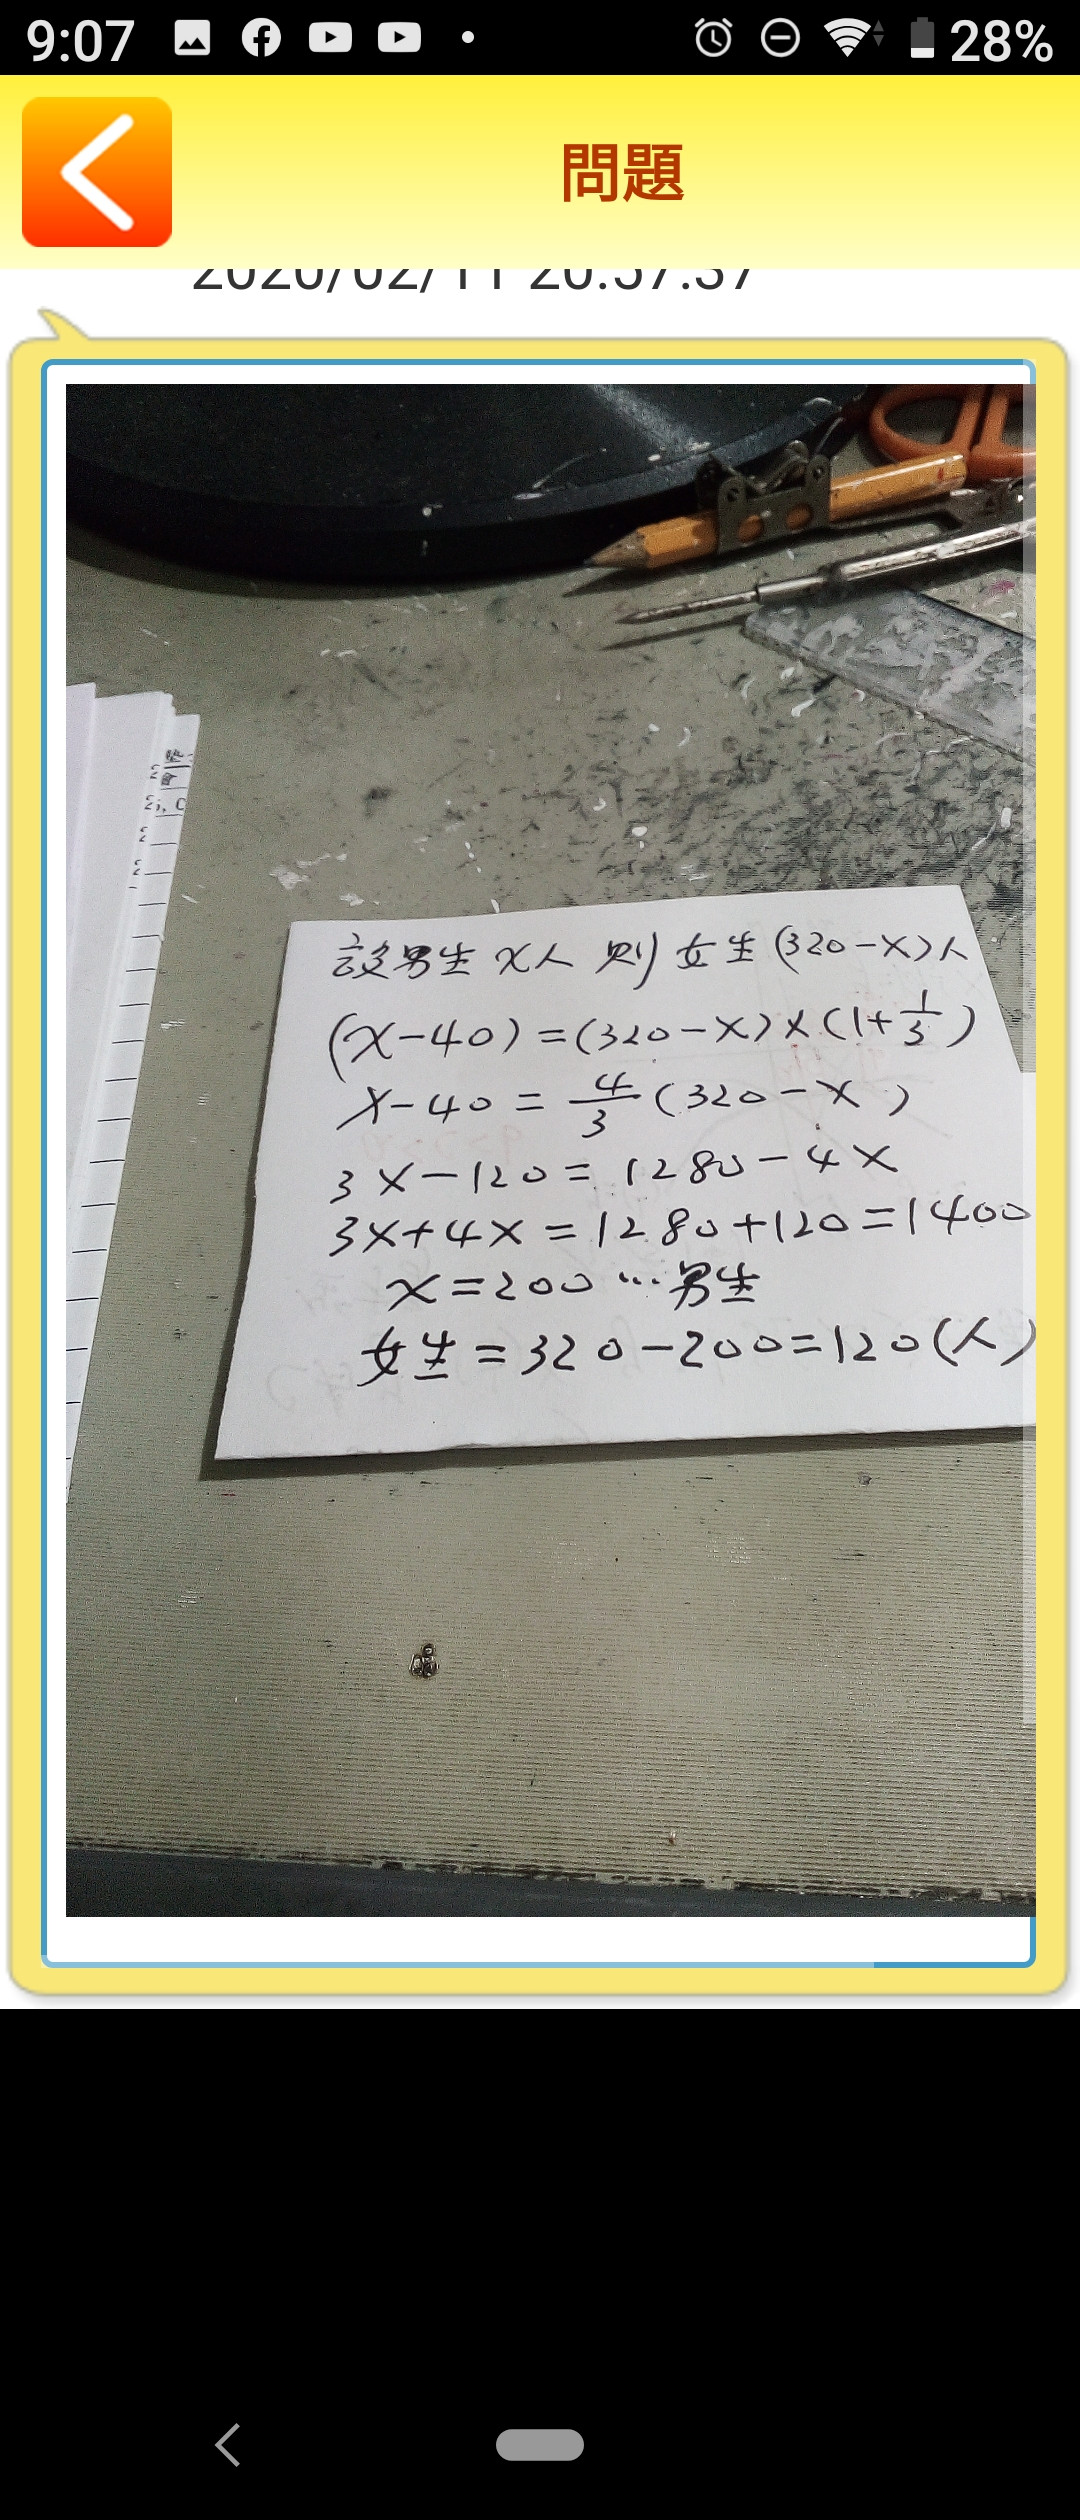 9:07
28%
問題
2020/02/11 20:57:37
設男生x人 則女生(320-x)人
(x-40)=(320-x)×(1+1/3)
x-40=4/3(320-x)
3x-120=1280-4x
3x+4x=1280+120=1400
x=200…男生
女生=320-200=120(人)